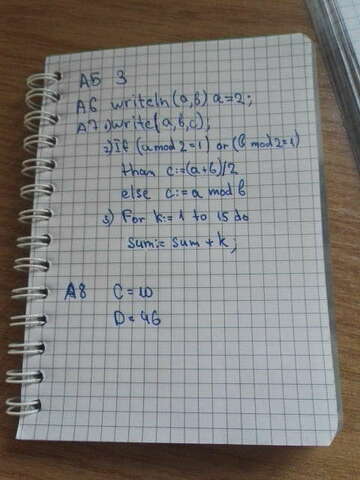 A5 3
A6 writeln(a,b) a=2;
A7 1) write(a,b,c);
2) If (a mod 2=1) or (b mod 2=1)
than c:=(a+b)/2
else c:= a mod b
3) For k:= 1 to 15 do
sum:= sum + k;
A8 C=10
D=46